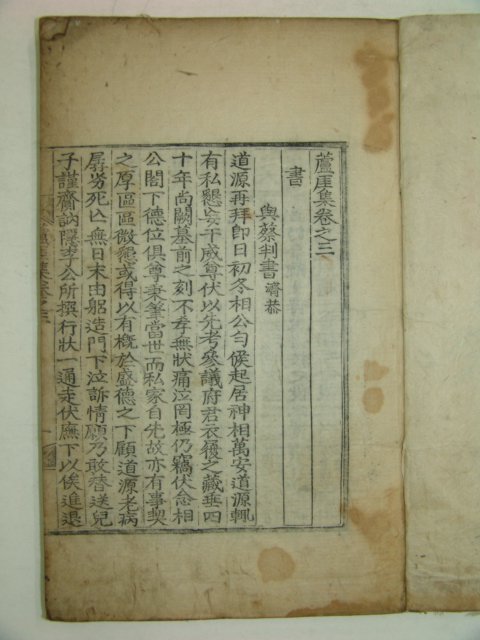 蘆厓集卷之三
書
與蔡判書濟恭
道源再拜卽日初冬相公勻候起居神相萬安道源輒
有私懇妄干威尊伏以先考參議府君衣履之藏垂四
十年尚闕墓前之刻不孝無狀痛泣罔極仍竊伏念相
公閤下德位俱尊秉筆當世而私家自先故亦有事契
之厚區區微懇或得以有槪於盛德之下顧道源老病
孱劣死亾無日末由躬造門下泣訴情願乃敢替送兒
子謹齎訥隱李公所撰行狀一通走伏廡下以俟進退